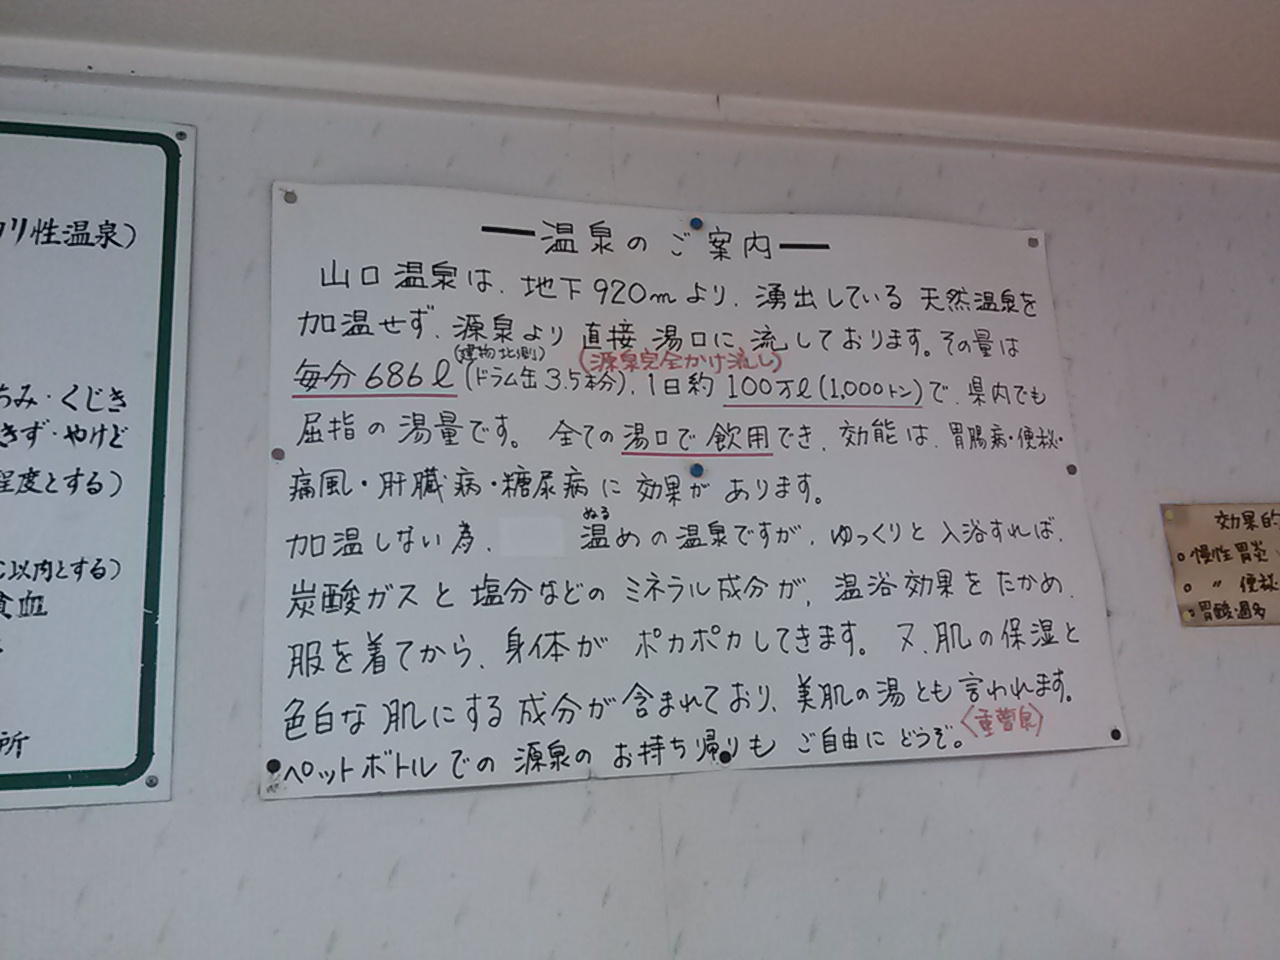 リ性温泉)
ちみ・くじき
きず・やけど
程度とする)
以内とする)
貧血
所
温泉のご案内
山口温泉は、地下920mより、湧出している天然温泉を
加温せず、源泉より直接湯口に流しております。その量は
(建物北側)
(源泉完全かけ流し)
毎分686ℓ(ドラム缶3.5本分)、1日約100万ℓ(1,000トン)で、県内でも
屈指の湯量です。全ての湯口で飲用でき、効能は、胃腸病・便秘・
痛風・肝臓病・糖尿病に効果があります。
ぬる
加温しない為、温めの温泉ですが、ゆっくりと入浴すれば、
炭酸ガスと塩分などのミネラル成分が、温浴効果をたかめ、
服を着てから、身体がポカポカしてきます。又、肌の保湿と
色白な肌にする成分が含まれており、美肌の湯とも言われます。
〈重曹泉〉
ペットボトルでの源泉のお持ち帰りもご自由にどうぞ。
効果的
○慢性胃炎
○〃便秘
○胃酸過多